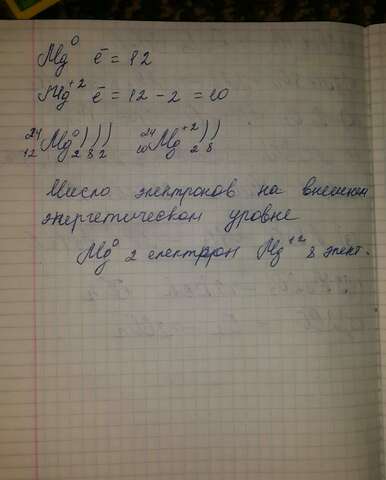 Mg⁰ ē = 12
Mg⁺² ē = 12 - 2 = 10
²⁴₁₂Mg⁰ ) ) ) ₂ ₈ ₂ ²⁴₁₀Mg⁺² ) ) ₂ ₈
Число электронов на внешнем
энергетическом уровне
Mg⁰ 2 електрон Mg⁺² 8 элект.